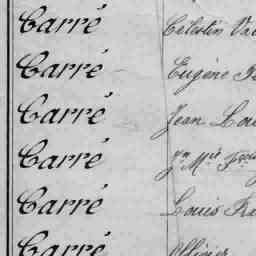 Carré Célestin
Carré Eugène
Carré Jean Lou
Carré Jn Mie Fçois
Carré Louis Fra
Carré Ollivier